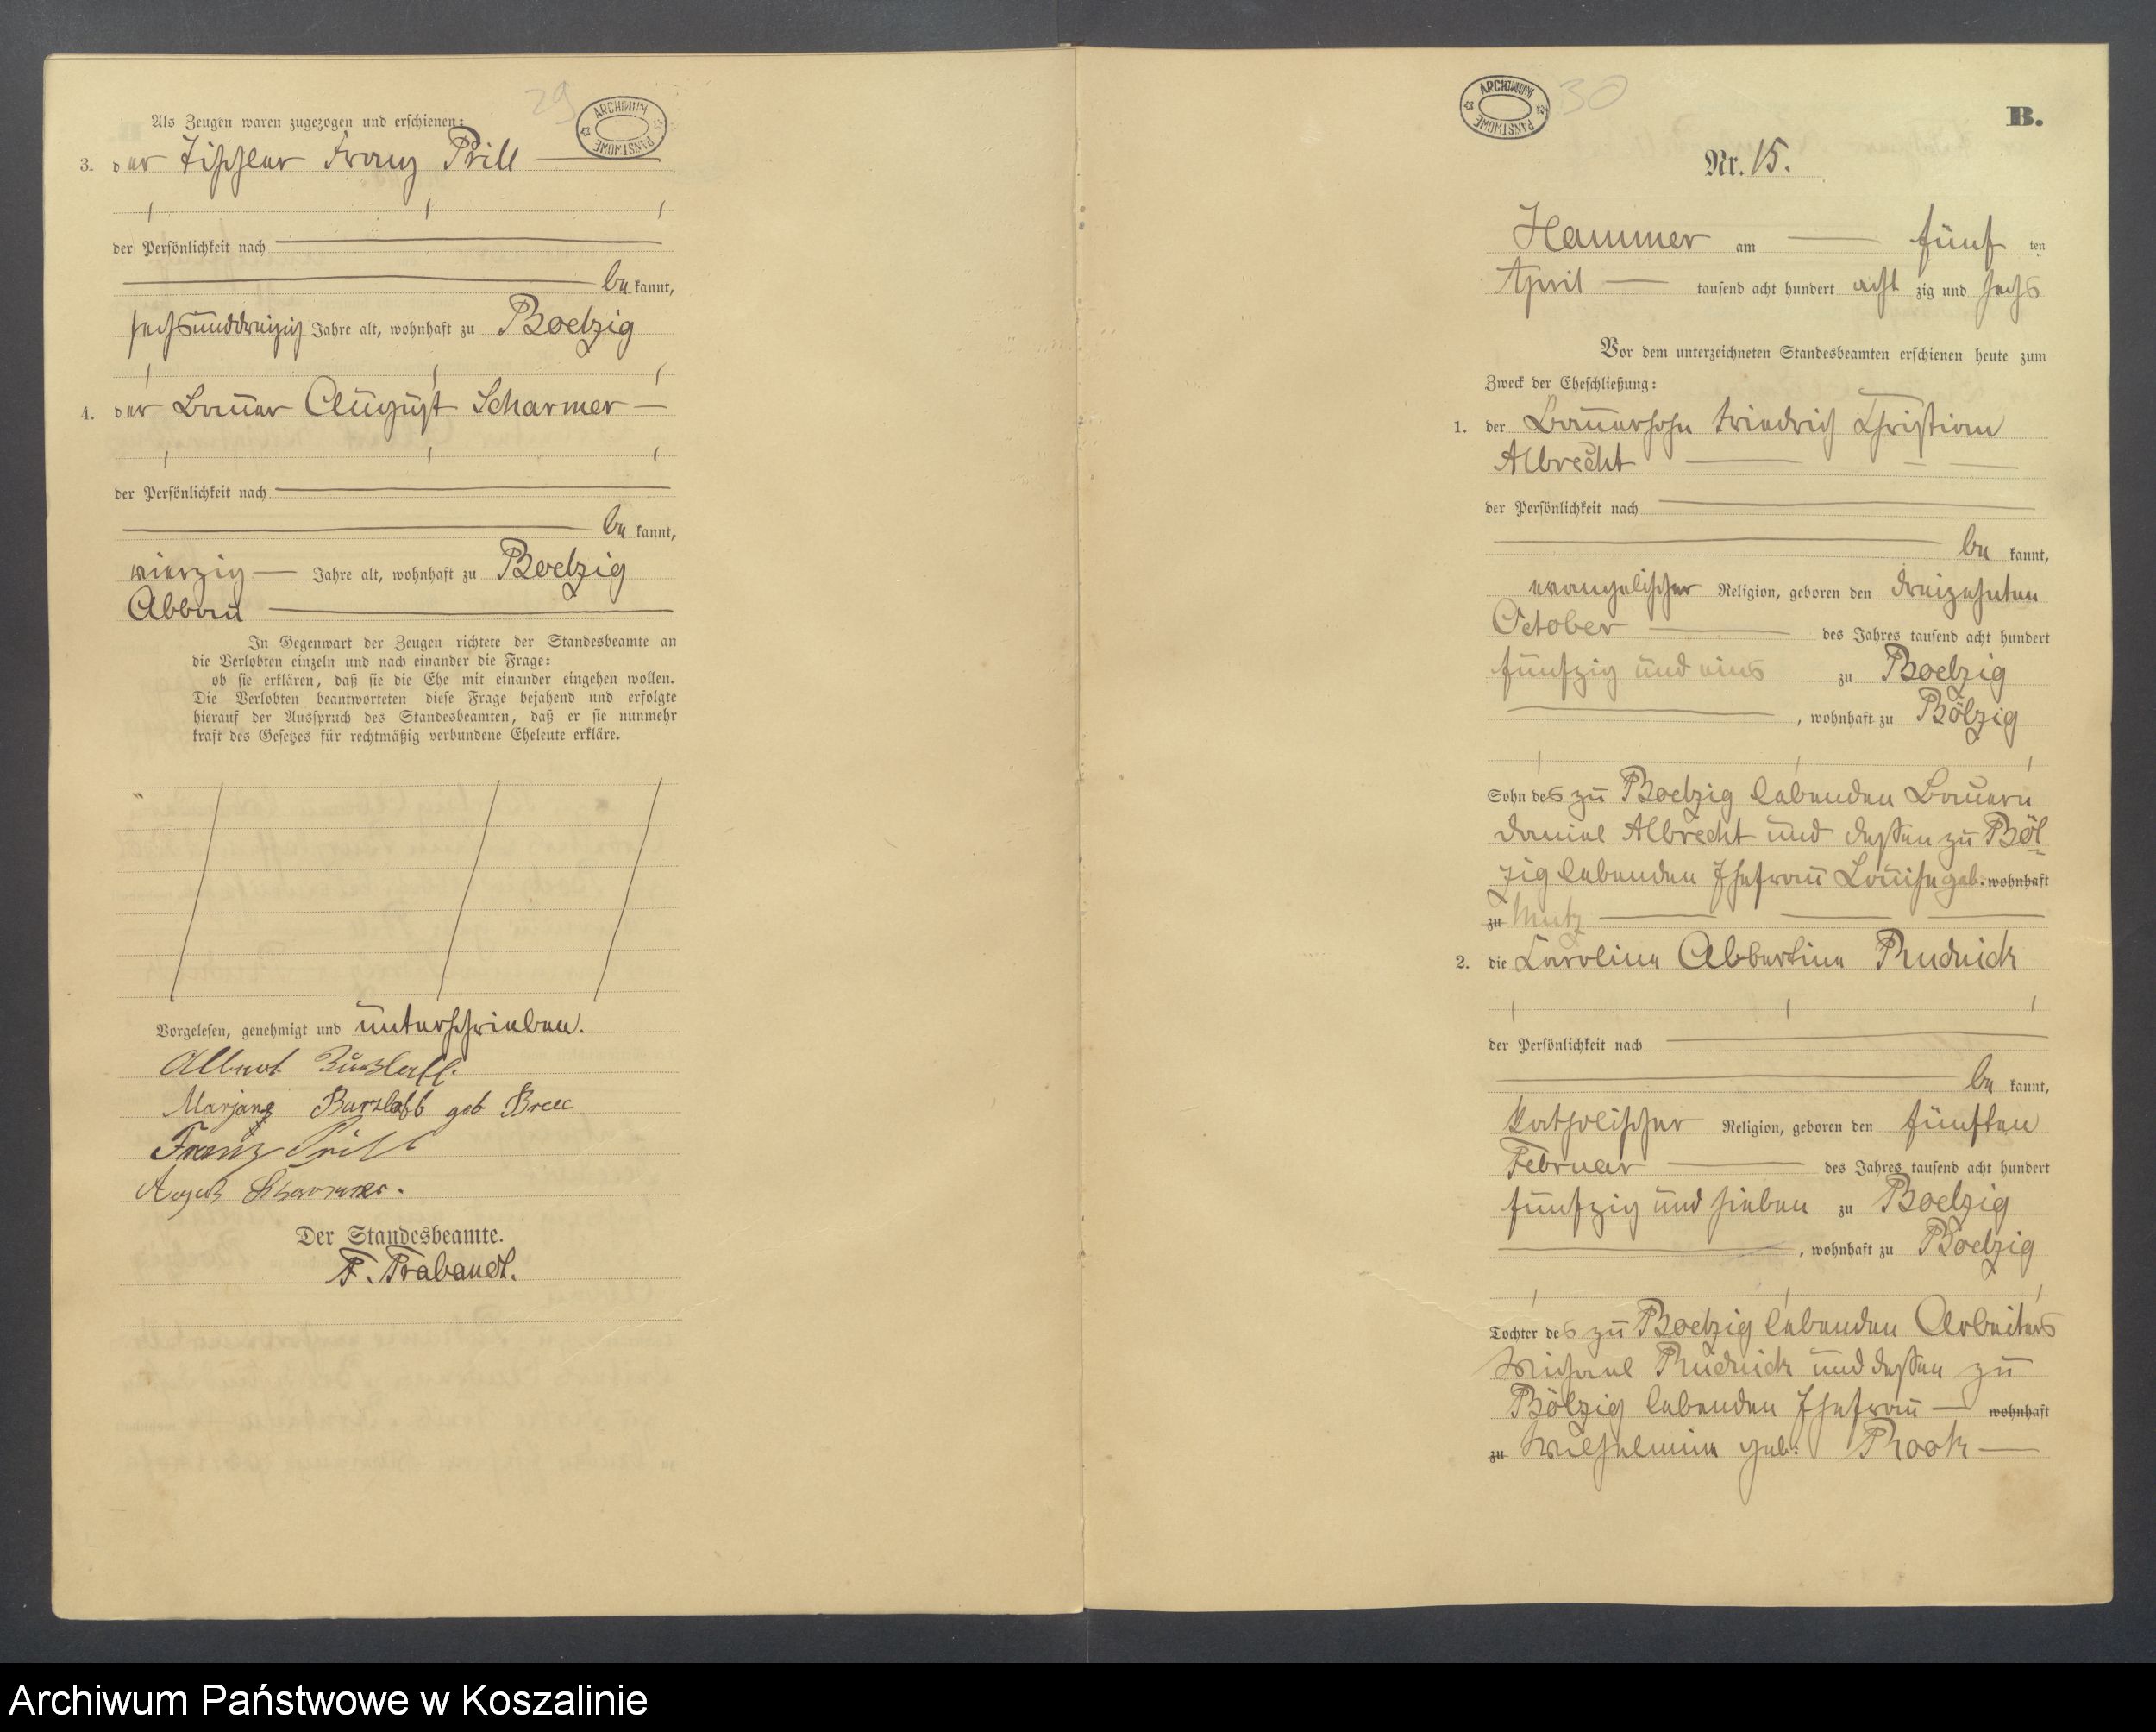 29
ARCHIWUM PAŃSTWOWE
Als Zeugen waren zugezogen und erschienen:
3. der Tischler Franz Prill
der Persönlichkeit nach
be kannt,
sechsunddreizig Jahre alt, wohnhaft zu Boelzig
4. der Bauer August Scharmer
der Persönlichkeit nach
be kannt,
vierzig Jahre alt, wohnhaft zu Boelzig
Abbau
In Gegenwart der Zeugen richtete der Standesbeamte an
die Verlobten einzeln und nach einander die Frage:
ob sie erklären, daß sie die Ehe mit einander eingehen wollen.
Die Verlobten beantworteten diese Frage bejahend und erfolgte
hierauf der Ausspruch des Standesbeamten, daß er sie nunmehr
kraft des Gesetzes für rechtmäßig verbundene Eheleute erkläre.
Vorgelesen, genehmigt und unterschrieben.
Albert
Barzlaff geb
Franz Prill
August Scharmer.
Der Standesbeamte.
F. Trabandt.
ARCHIWUM PAŃSTWOWE
30
B.
Nr. 15.
Hammer am fünf ten
April tausend acht hundert acht zig und sechs
Vor dem unterzeichneten Standesbeamten erschienen heute zum
Zweck der Eheschließung:
1. der Bauersohn Friedrich Christian
Albrecht
der Persönlichkeit nach
be kannt,
evangelischer Religion, geboren den dreizehnten
October des Jahres tausend acht hundert
fünfzig und eins zu Boelzig
, wohnhaft zu Bölzig
Sohn des zu Boelzig lebenden Bauern
Daniel Albrecht und dessen zu Böl-
zig lebenden Ehefrau Louise geb. wohnhaft
zu Mutz
2. die Caroline Albertine Rudnick
der Persönlichkeit nach
be kannt,
katholischer Religion, geboren den fünften
Februar des Jahres tausend acht hundert
fünfzig und sieben zu Boelzig
, wohnhaft zu Boelzig
Tochter des zu Boelzig lebenden Arbeiters
Michael Rudnick und dessen zu
Bölzig lebenden Ehefrau wohnhaft
zu Wilhelmine geb: Rook
Archiwum Państwowe w Koszalinie